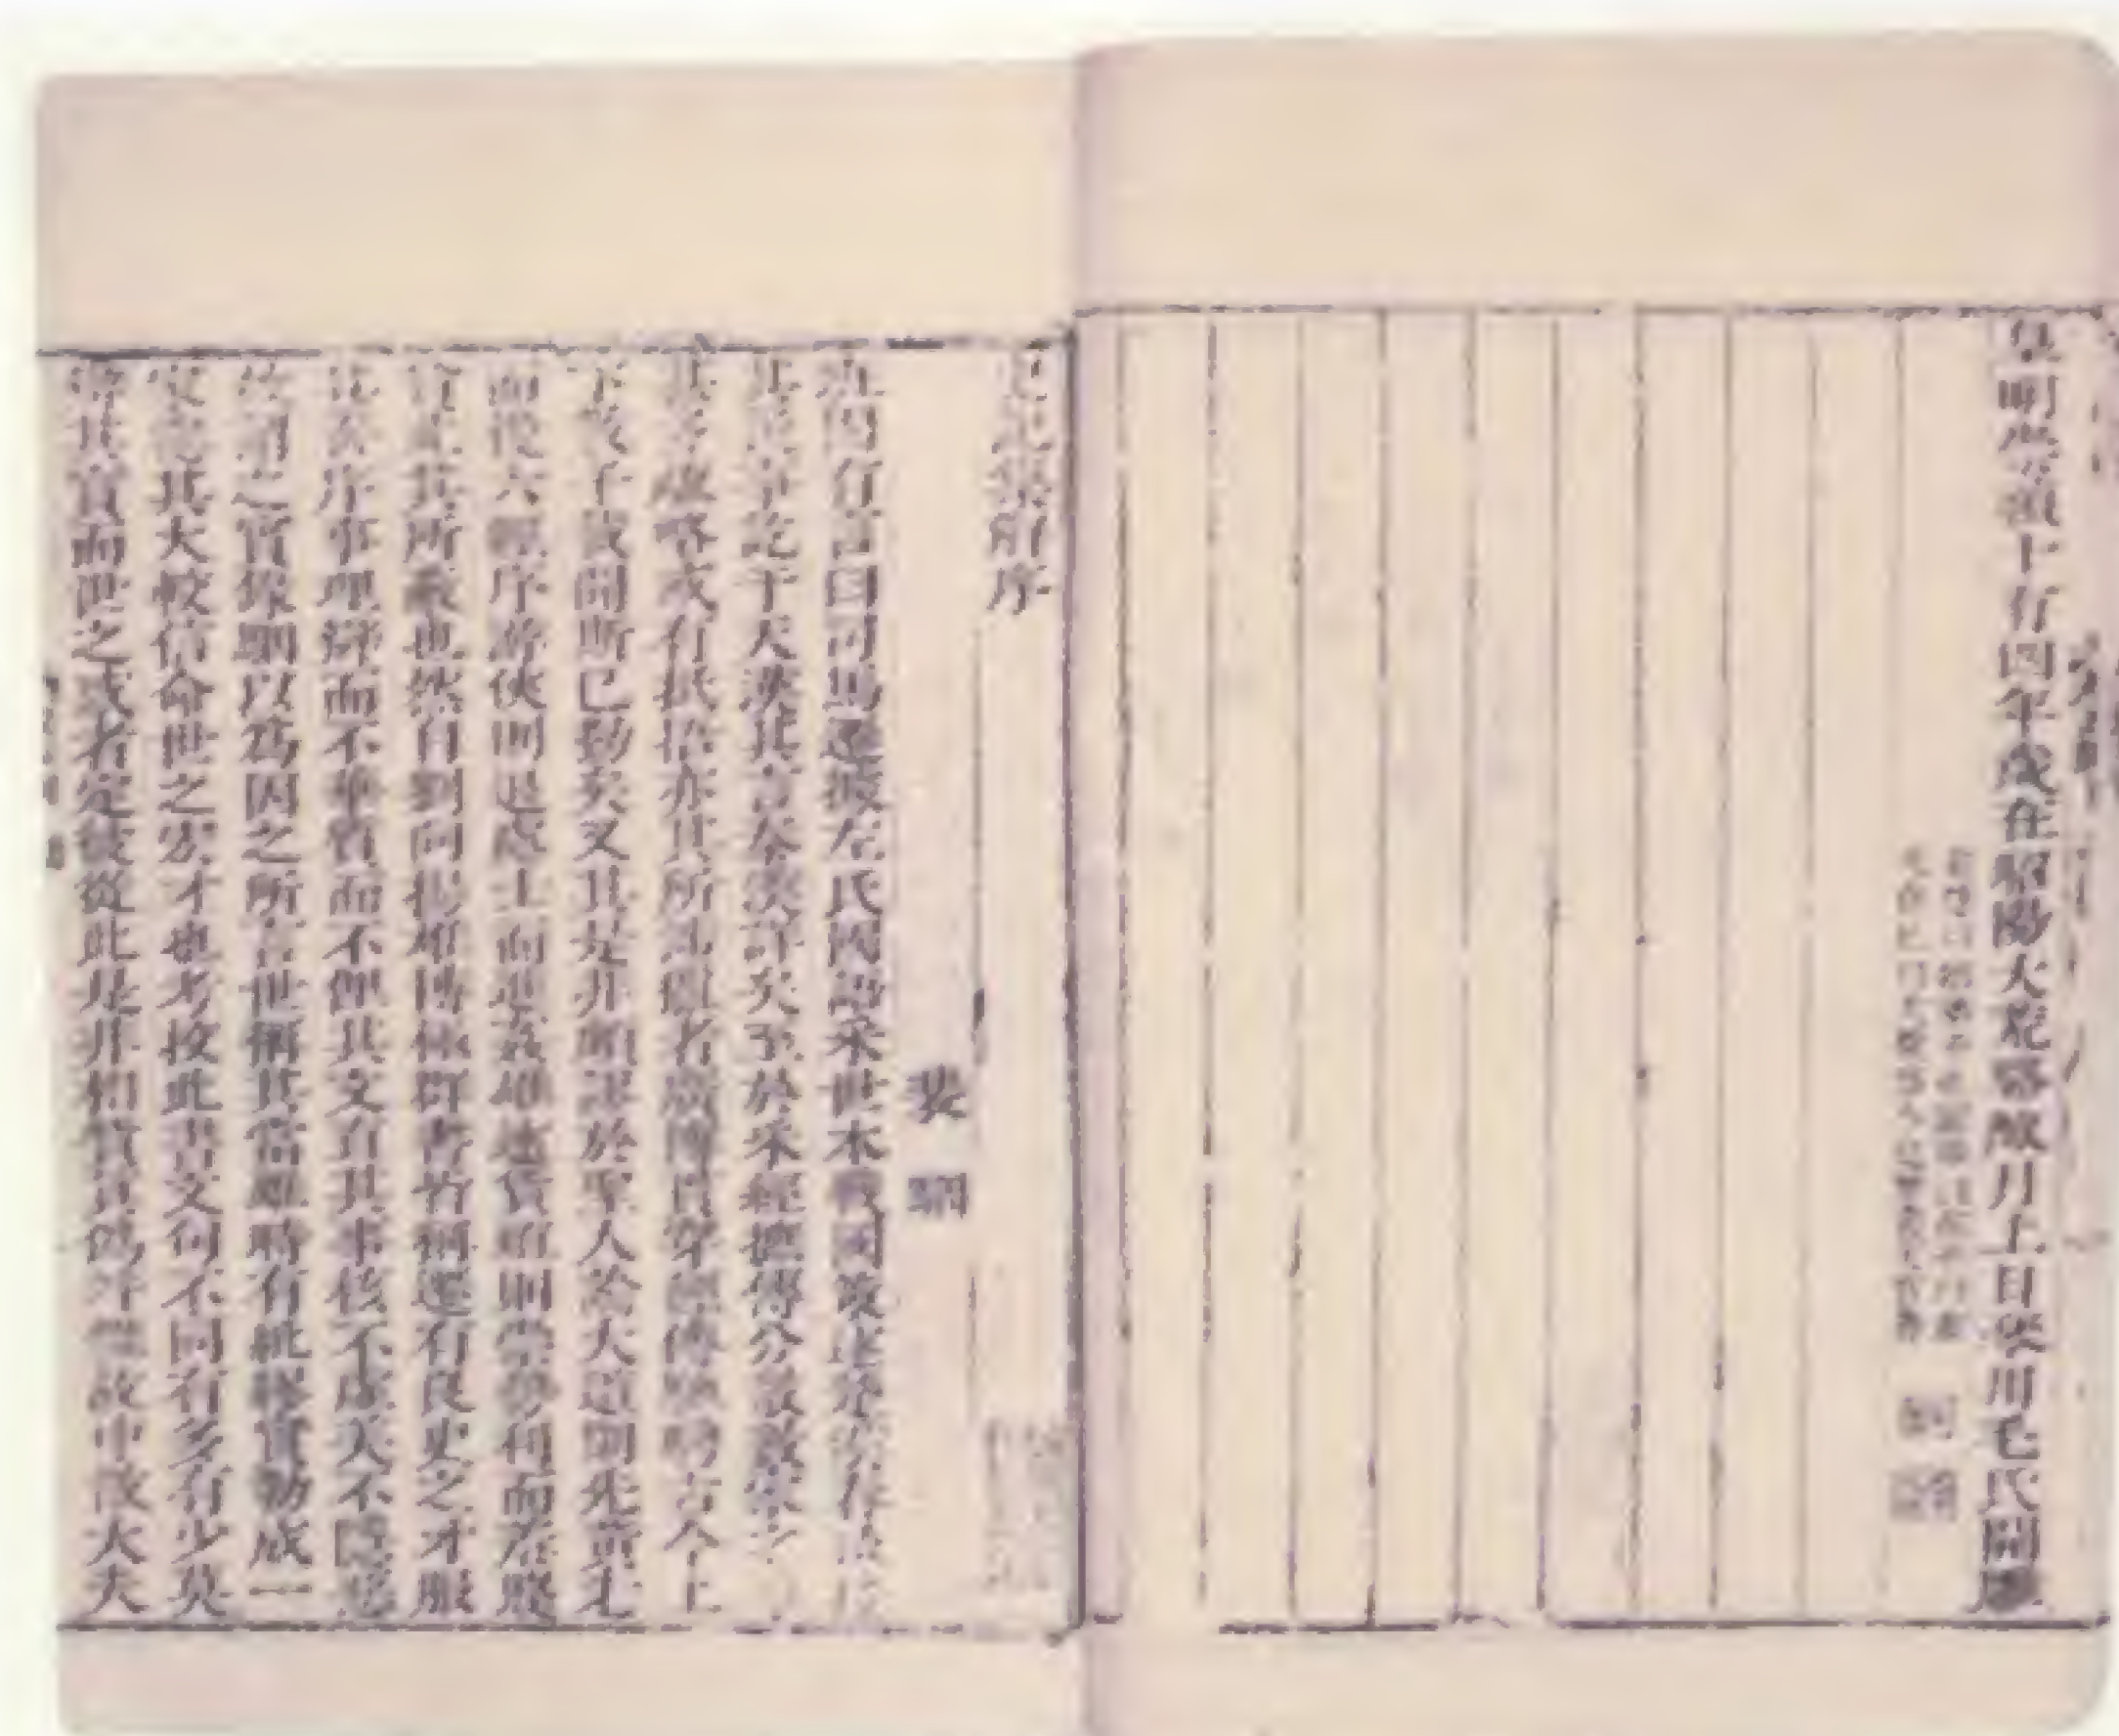 皇明崇禎十有四年歲在昭陽大荒落陬月上日琴川毛氏開雕
史記集解序
裴 駰
班固有言曰司馬遷據左氏國語采世本戰國策述楚漢春秋接
其後事訖于天漢其言秦漢詳矣至於采經摭傳分散數家之
甚多疏略或有抵捂亦其所涉獵者廣博貫穿經傳馳騁古今上
下數千載間斯已勤矣又其是非頗謬於聖人論大道則先黃老
而後六經序游俠則退處士而進姦雄述貨殖則崇勢利而羞賤
貧此其所蔽也然自劉向揚雄博極群書皆稱遷有良史之才服
其善序事理辯而不華質而不俚其文直其事核不虛美不隱惡
故謂之實錄駰以為固之所言世稱其當雖時有紕繆實勒成一
家總其大較信命世之宏才也考校此書文句不同有多有少莫
辯其實而世之惑者定彼從此是非相貿真偽舛雜故中散大夫